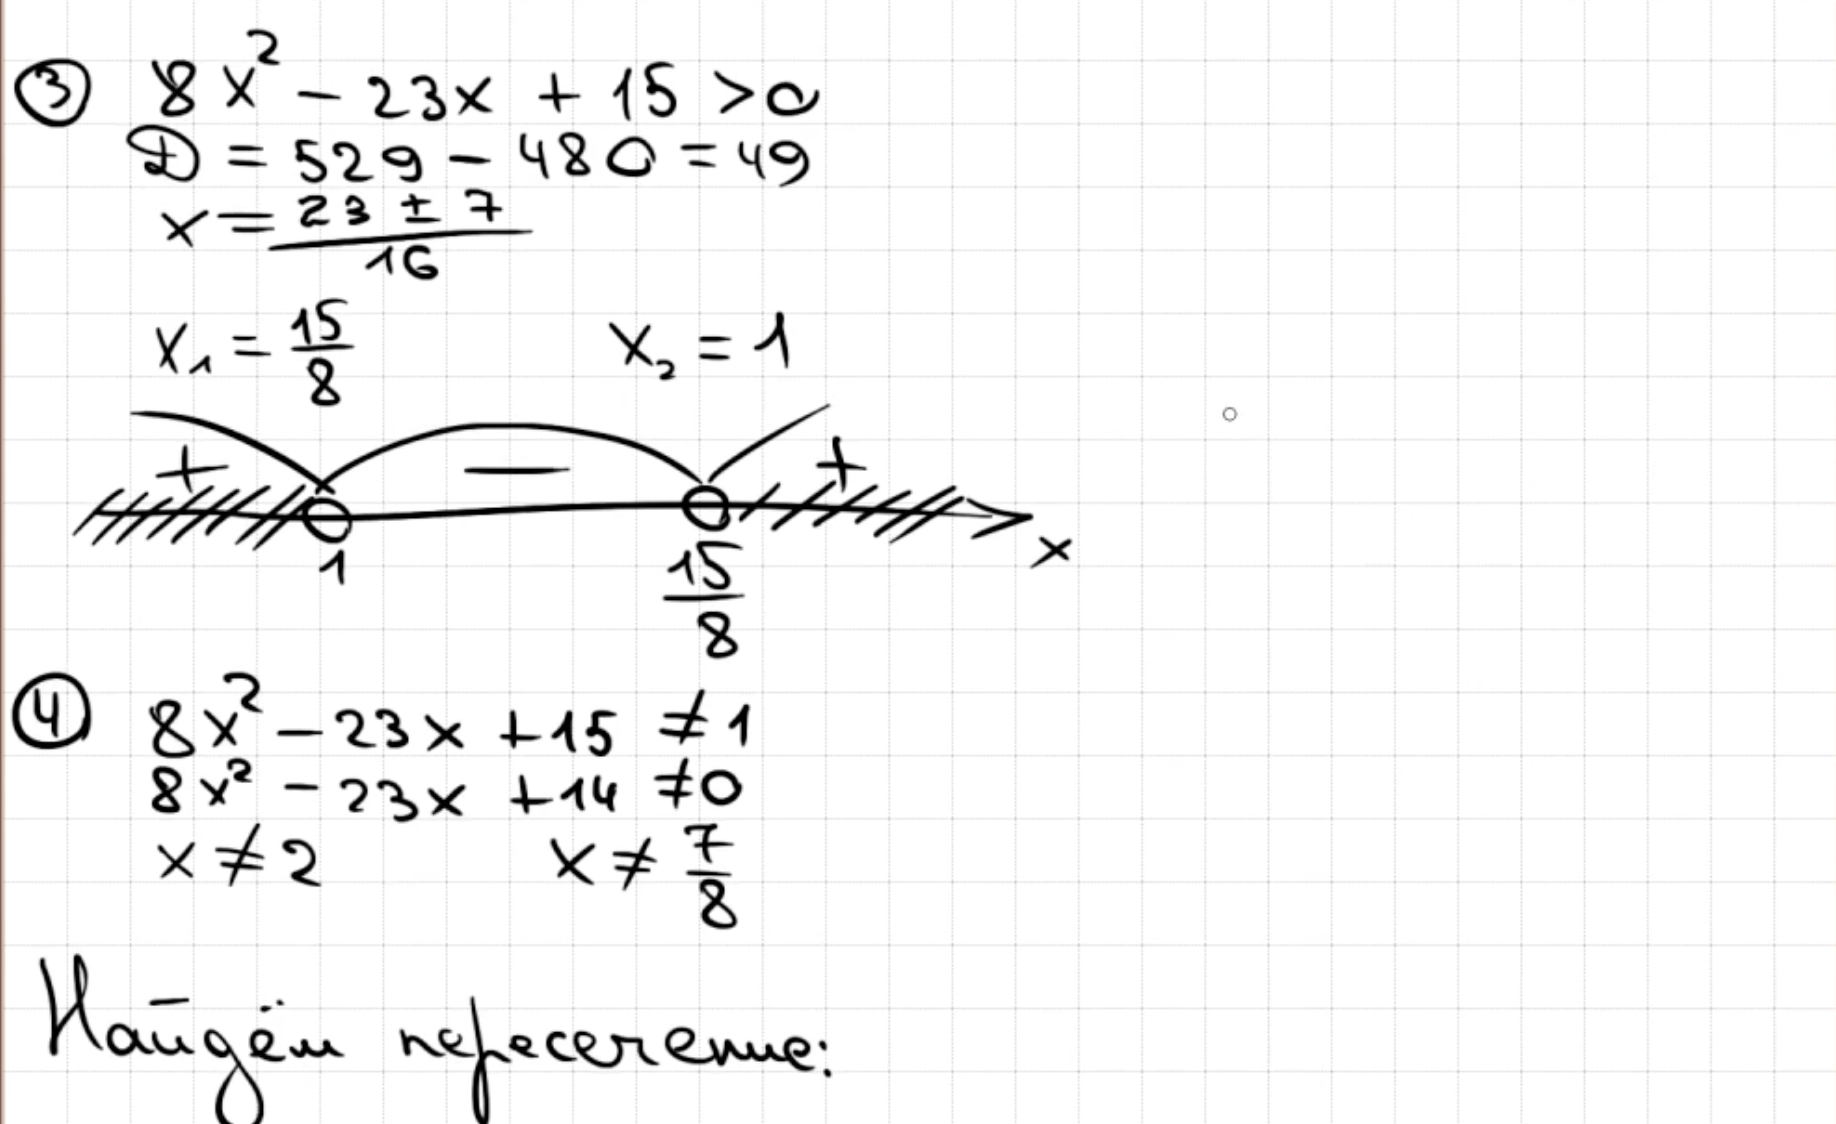 ③ 8x² - 23x + 15 > 0
D = 529 - 480 = 49
x = (23 ± 7)/16
x₁ = 15/8 x₂ = 1
+ − +
1 15/8 x
④ 8x² - 23x + 15 ≠ 1
8x² - 23x + 14 ≠ 0
x ≠ 2 x ≠ 7/8
Найдём пересечение: